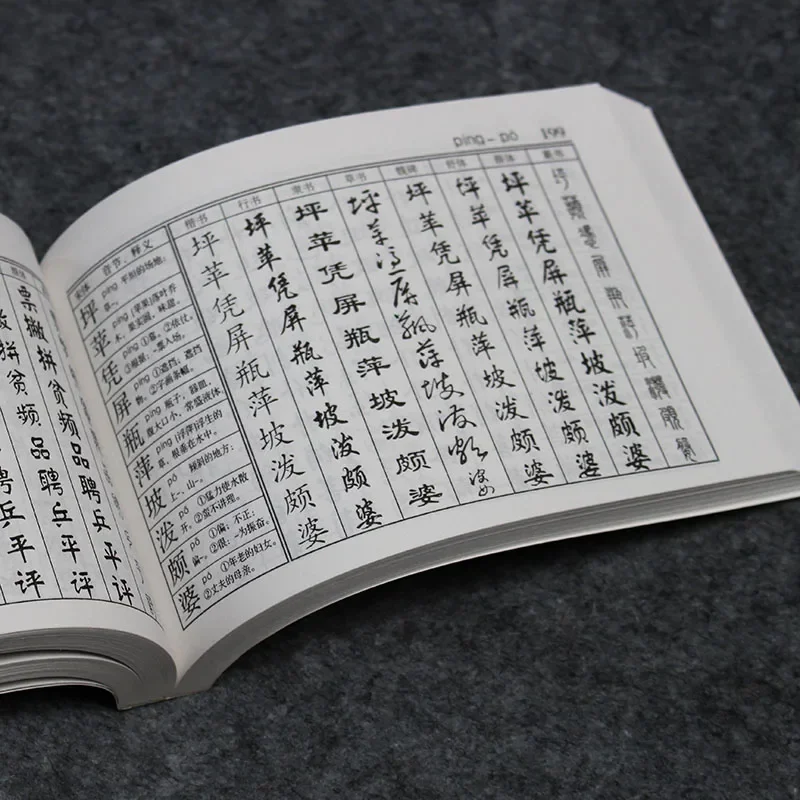 票 票
撇 撇
拼 拼
贫 贫
频 频
品 品
聘 聘
乒 乒
平 平
评 评
píng – pō 199
宋体 音节、释义 楷书 行书 隶书 草书 魏碑 舒体 颜体 篆书
坪 píng 平坦的场地：
草~。 坪 坪 坪 坪 坪 坪 坪
苹 píng (苹果)落叶乔
木，果实圆，味甜。 苹 苹 苹 苹 苹 苹 苹
凭 píng ①靠。②依仗。
③根据：~票入场。 凭 凭 凭 凭 凭 凭 凭
屏 píng ①遮挡，遮挡
物。②字画条幅。 屏 屏 屏 屏 屏 屏 屏
瓶 píng 瓶子，器皿，
腹大口小，常盛液体。 瓶 瓶 瓶 瓶 瓶 瓶 瓶
萍 píng (浮萍)浮生的
草，根垂在水中。 萍 萍 萍 萍 萍 萍 萍
坡 pō 倾斜的地方：
上~，山~。 坡 坡 坡 坡 坡 坡 坡
泼 pō ①猛力使水散
开。②蛮不讲理。 泼 泼 泼 泼 泼 泼 泼
颇 pō ①偏；不正：
偏~。②很：~为振奋。 颇 颇 颇 颇 颇 颇 颇
婆 pó ①年老的妇女。
②丈夫的母亲。 婆 婆 婆 婆 婆 婆 婆